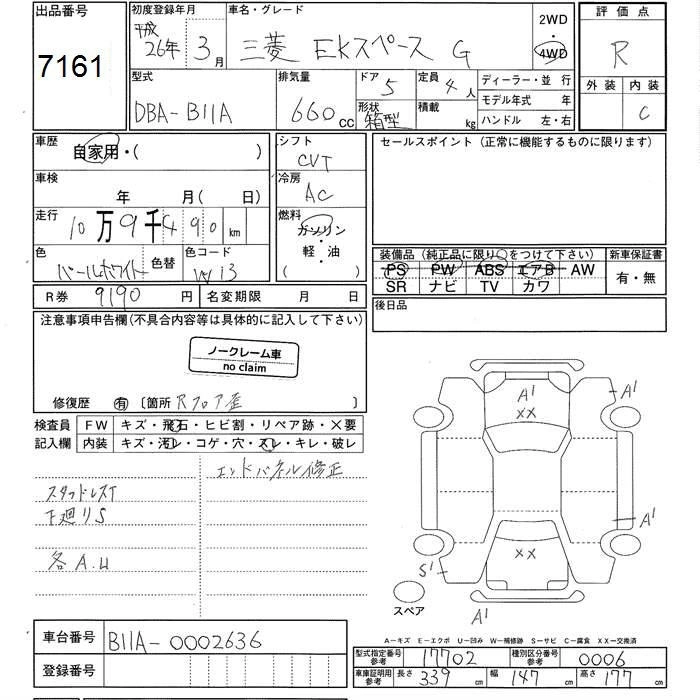 出品番号
7161
初度登録年月
平成
26年 3月
車名・グレード
三菱 EKスペース G
2WD
・
4WD
評価点
R
外装 内装
C
型式
DBA-B11A
排気量
660 cc
ドア
5
形状
箱型
定員
4人
積載
kg
ディーラー・並 行
モデル年式 年
ハンドル 左・右
車歴
自家用・( )
車検
年 月( 日)
走行
10万9千490 km
色
パールホワイト
色替
色コード
W13
シフト
CVT
冷房
AC
燃料
ガソリン
軽・油
( )
セールスポイント (正常に機能するものに限ります)
装備品 (純正品に限り○をつけて下さい)
PS PW ABS エアB AW
SR ナビ TV カワ
新車保証書
有・無
後日品
R券 9190 円
名変期限 月 日
注意事項申告欄(不具合内容等は具体的に記入して下さい)
ノークレーム車
no claim
修復歴 有 〔箇所 Rフロア歪 〕
検査員
記入欄
FW キズ・飛石・ヒビ割・リペア跡・×要
内装 キズ・汚レ・コゲ・穴・スレ・キレ・破レ
エンドパネル修正
スタッドレスT
下廻りS
各A.U
A1
XX
A1
A1
XX
S1
A1
スペア
A-キズ E-エクボ U-凹み W-補修跡 S-サビ C-腐食 XX-交換済
車台番号 B11A-0002636
登録番号
型式指定番号
参考
17702
種別区分番号
参考
0006
車庫証明用
参考
長さ 339 cm 幅 147 cm 高さ 177 cm